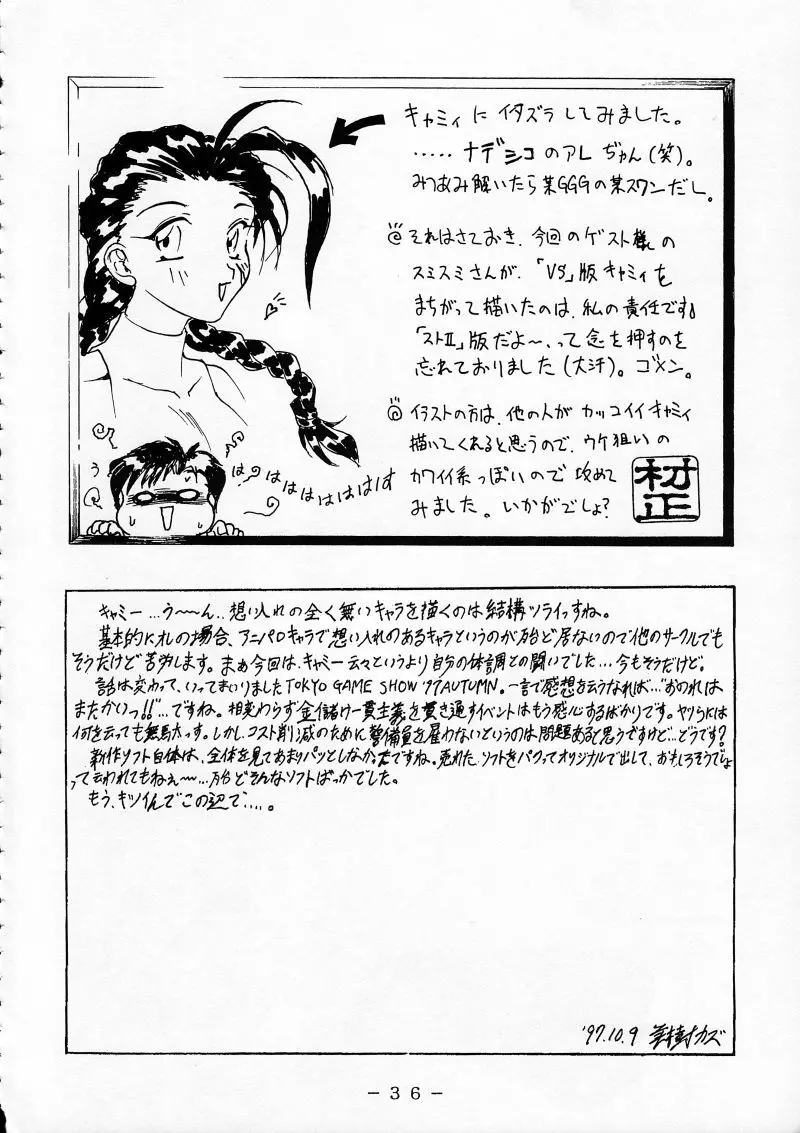 キャミィにイタズラしてみました。
‥‥‥ナデシコのアレぢゃん(笑)。
みつあみ解いたら某GGGの某スワンだし。
それはさておき、今回のゲスト様の
スミスミさんが、「VS」版キャミィを
まちがって描いたのは、私の責任です。
「ストⅡ」版だよ〜、って念を押すのを
忘れておりました(大汗)。ゴメン。
イラストの方は、他の人がカッコイイキャミィ
描いてくれると思うので、ウケ狙いの
カワイイ系っぽいので攻めて
みました。いかがでしょ?
村正
う
はっはははははは
キャミー…う〜〜ん‥想い入れの全く無いキャラを描くのは結構ツライっすね。
基本的にオレの場合、アニパロのキャラで想い入れのあるキャラというのが殆ど居ないので他のサークルでも
そうだけど苦労します。まぁ今回は、キャミー云々というより自分の体調との闘いでした…今もそうだけど。
話は変わって、いってまいりましたTOKYO GAME SHOW '97 AUTUMN。一言で感想を云うなれば…"おのれは
またかいっ!!"…ですね。相変わらず金儲け一貫主義を貫き通すイベントはもう感心するばかりです。ヤツらには
何を云っても無駄っす。しかし、コスト削減のために警備員を雇わないというのは問題あると思うですけど…どうです?
新作ソフト自体は、全体を見てあまりパッとしなかったですね。売れたソフトをパクってオリジナルで出して、おもしろそうでしょ
って云われてもねぇ〜〜…殆どそんなソフトばっかでした。
もう、キツイんでこの辺で‥‥。
'97.10.9 カズ
－36－